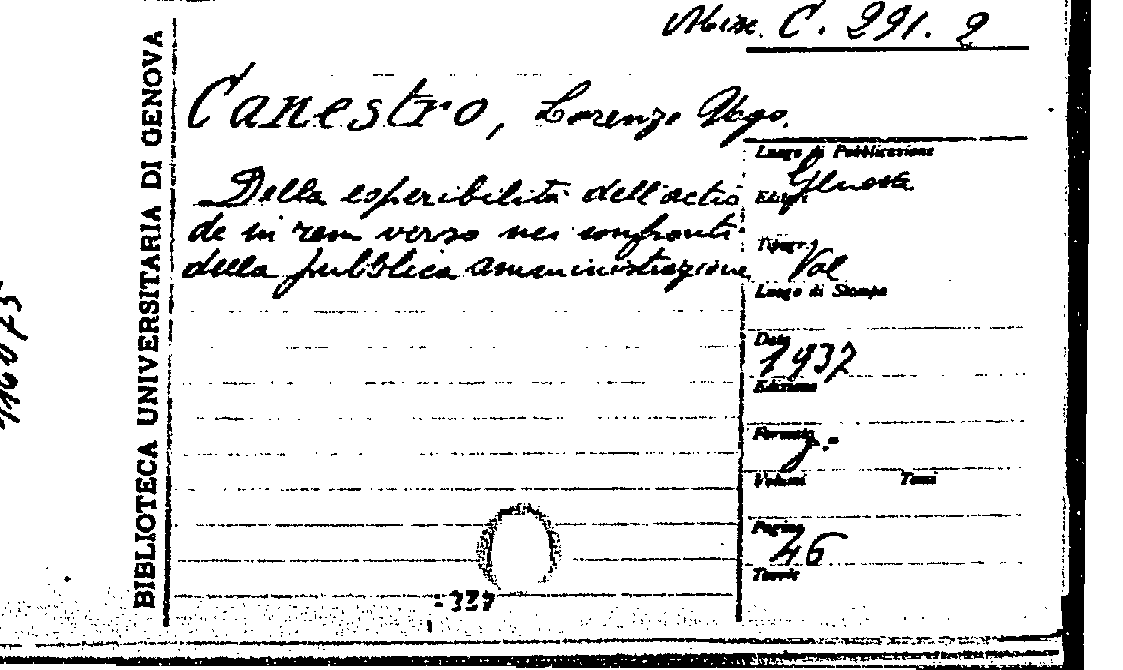 Misc. C. 291. 2
BIBLIOTECA UNIVERSITARIA DI GENOVA
Canestro, Lorenzo Ugo.
Della esperibilità dell'actio
de in rem verso nei confronti
della pubblica amministrazione
Luogo di Pubblicazione
Editori
Tipogr.
Vol
Luogo di Stampa
Data
1937
Edizione
Formato
Volumi Tomi
Pagine
46
Tavole